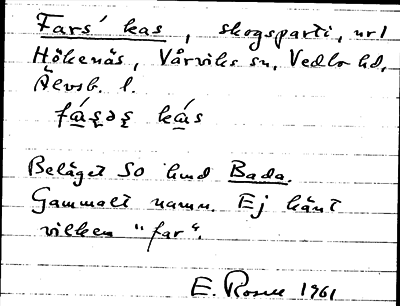 Fars' kas, skogsparti, nr 1
Hökenäs, Vårviks sn, Vedbo hd,
Älvsb. l.
Beläget SO lund Bada.
Gammalt namn. Ej känt
vilken "far".
E. Rosell 1961